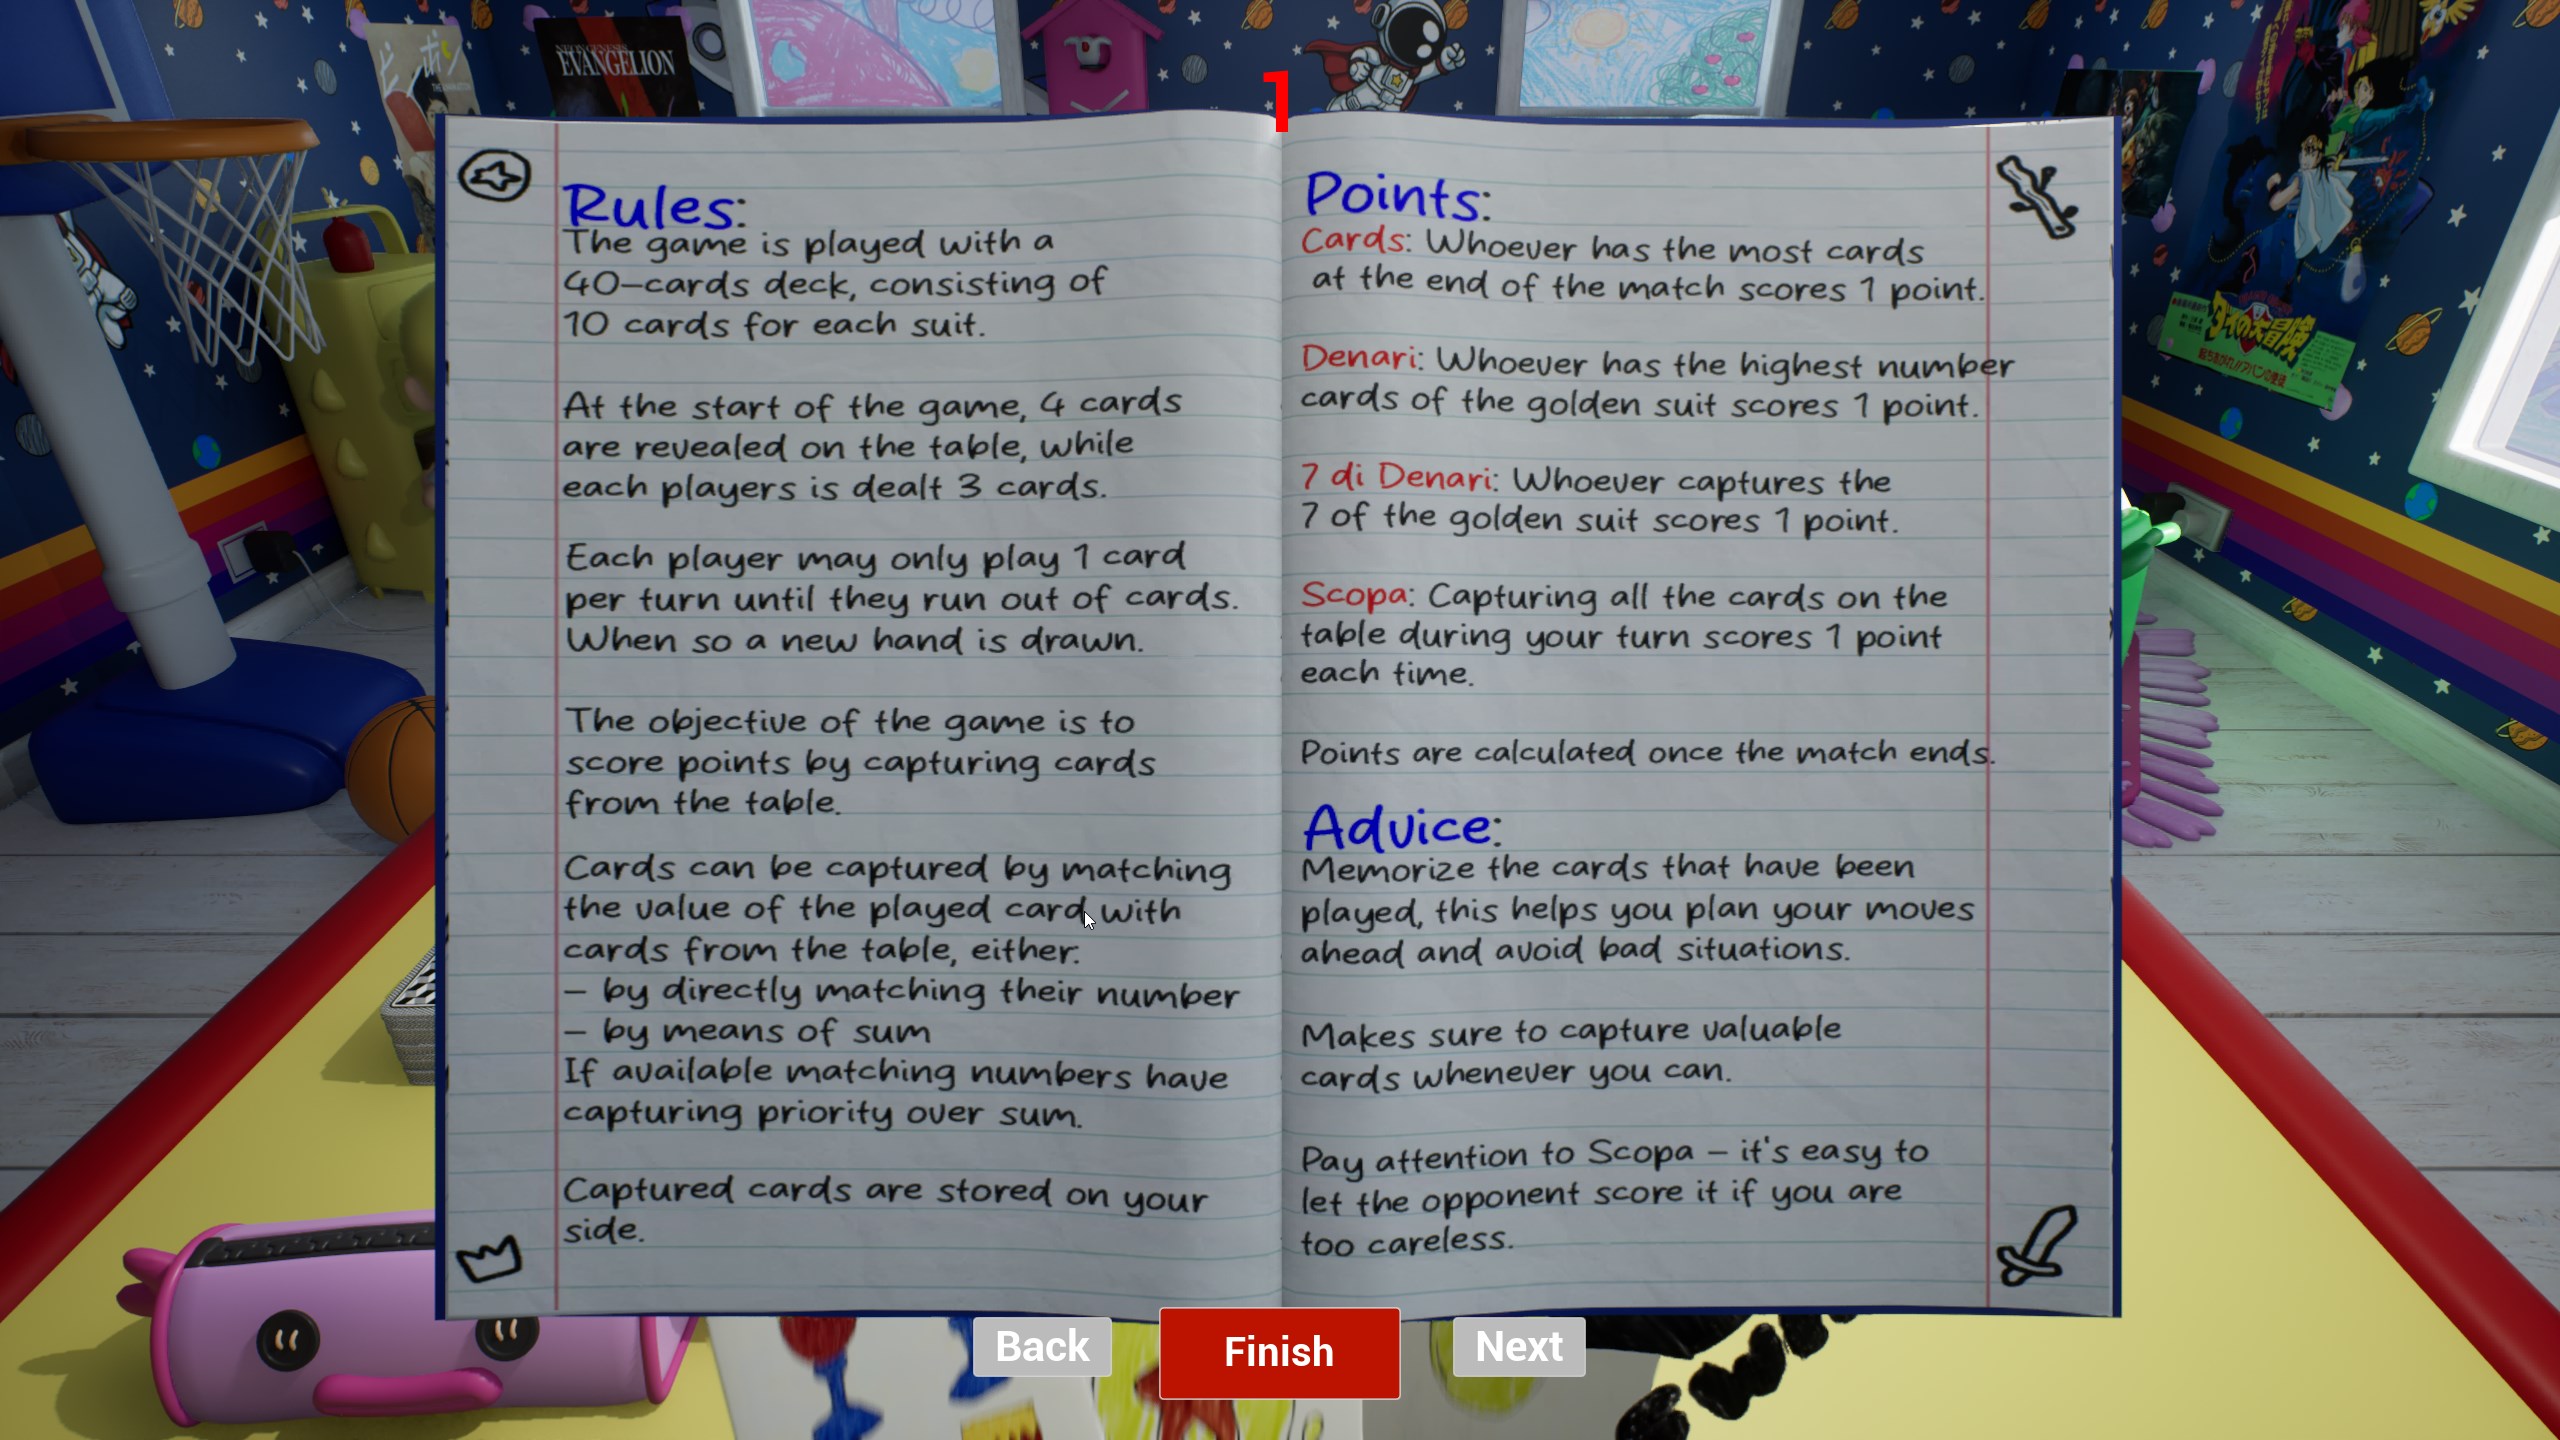 NEON GENESIS
EVANGELION
1
Rules:
The game is played with a
40-cards deck, consisting of
10 cards for each suit.
At the start of the game, 4 cards
are revealed on the table, while
each players is dealt 3 cards.
Each player may only play 1 card
per turn until they run out of cards.
When so a new hand is drawn.
The objective of the game is to
score points by capturing cards
from the table.
Cards can be captured by matching
the value of the played card with
cards from the table, either:
- by directly matching their number
- by means of sum
If available matching numbers have
capturing priority over sum.
Captured cards are stored on your
side.
Points:
Cards: Whoever has the most cards
at the end of the match scores 1 point.
Denari: Whoever has the highest number
cards of the golden suit scores 1 point.
7 di Denari: Whoever captures the
7 of the golden suit scores 1 point.
Scopa: Capturing all the cards on the
table during your turn scores 1 point
each time.
Points are calculated once the match ends.
Advice:
Memorize the cards that have been
played, this helps you plan your moves
ahead and avoid bad situations.
Makes sure to capture valuable
cards whenever you can.
Pay attention to Scopa - it's easy to
let the opponent score it if you are
too careless.
ダイの大冒険
Back
Finish
Next